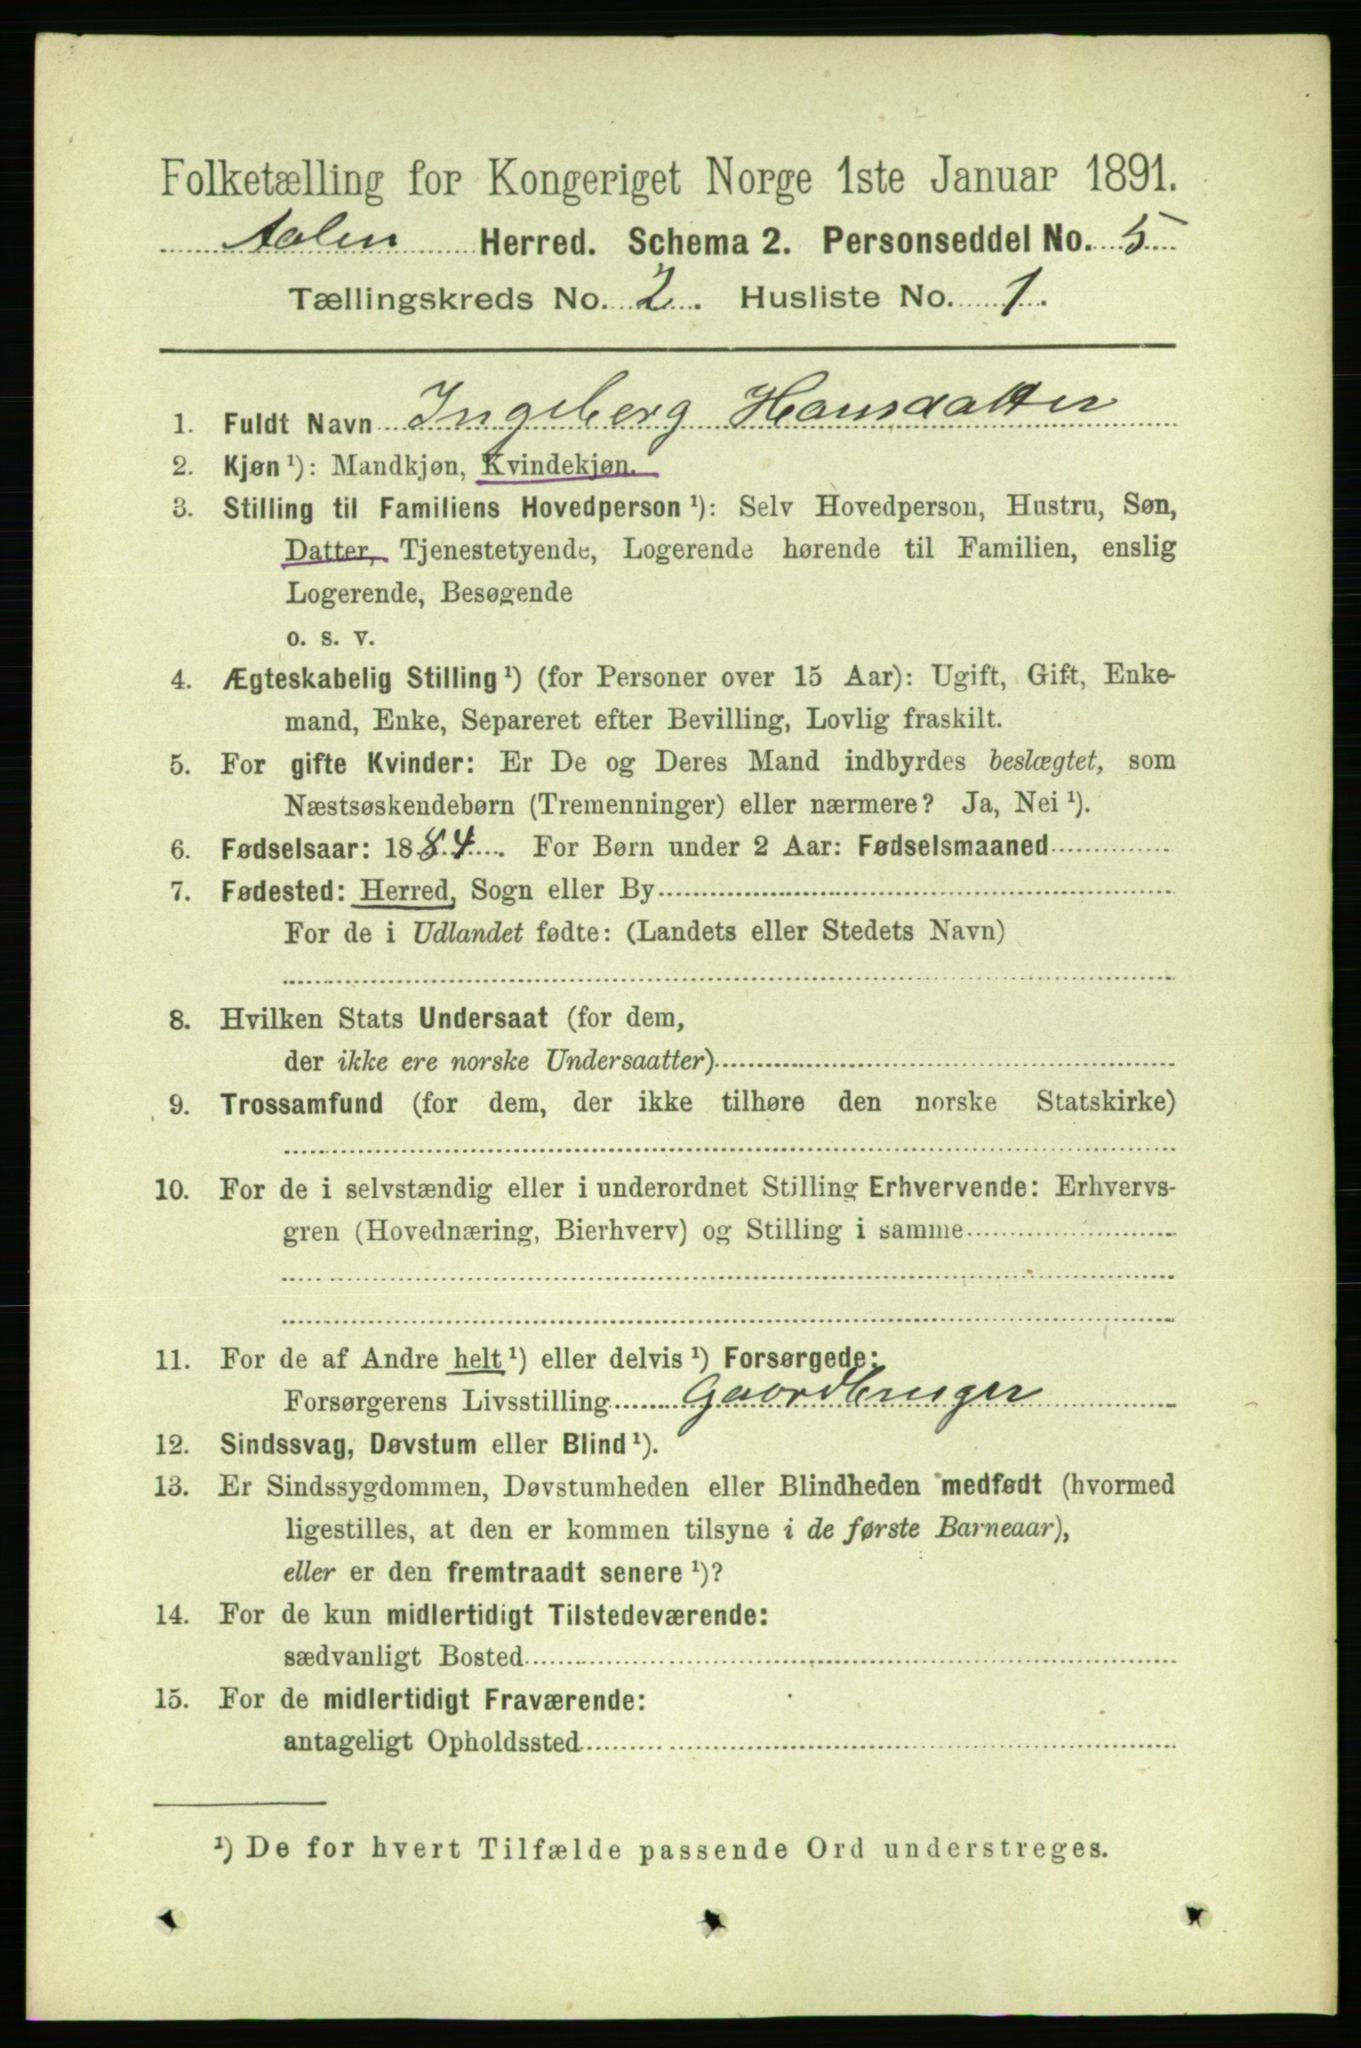 Folketælling for Kongeriget Norge 1ste Januar 1891.
Aalen Herred. Schema 2. Personseddel No. 5
Tællingskreds No. 2. Husliste No. 1.
1. Fuldt Navn Ingeberg Hansdatter
2. Kjøn ¹): Mandkjøn, Kvindekjøn.
3. Stilling til Familiens Hovedperson ¹): Selv Hovedperson, Hustru, Søn,
Datter, Tjenestetyende, Logerende hørende til Familien, enslig
Logerende, Besøgende
o. s. v.
4. Ægteskabelig Stilling ¹) (for Personer over 15 Aar): Ugift, Gift, Enke-
mand, Enke, Separeret efter Bevilling, Lovlig fraskilt.
5. For gifte Kvinder: Er De og Deres Mand indbyrdes beslægtet, som
Næstsøskendebørn (Tremenninger) eller nærmere? Ja, Nei ¹).
6. Fødselsaar: 1884. For Børn under 2 Aar: Fødselsmaaned
7. Fødested: Herred, Sogn eller By
For de i Udlandet fødte: (Landets eller Stedets Navn)
8. Hvilken Stats Undersaat (for dem,
der ikke ere norske Undersaatter)
9. Trossamfund (for dem, der ikke tilhøre den norske Statskirke)
10. For de i selvstændig eller i underordnet Stilling Erhvervende: Erhvervs-
gren (Hovednæring, Bierhverv) og Stilling i samme
11. For de af Andre helt ¹) eller delvis ¹) Forsørgede:
Forsørgerens Livsstilling Gaardbruger
12. Sindssvag, Døvstum eller Blind ¹).
13. Er Sindssygdommen, Døvstumheden eller Blindheden medfødt (hvormed
ligestilles, at den er kommen tilsyne i de første Barneaar),
eller er den fremtraadt senere ¹)?
14. For de kun midlertidigt Tilstedeværende:
sædvanligt Bosted
15. For de midlertidigt Fraværende:
antageligt Opholdssted
¹) De for hvert Tilfælde passende Ord understreges.